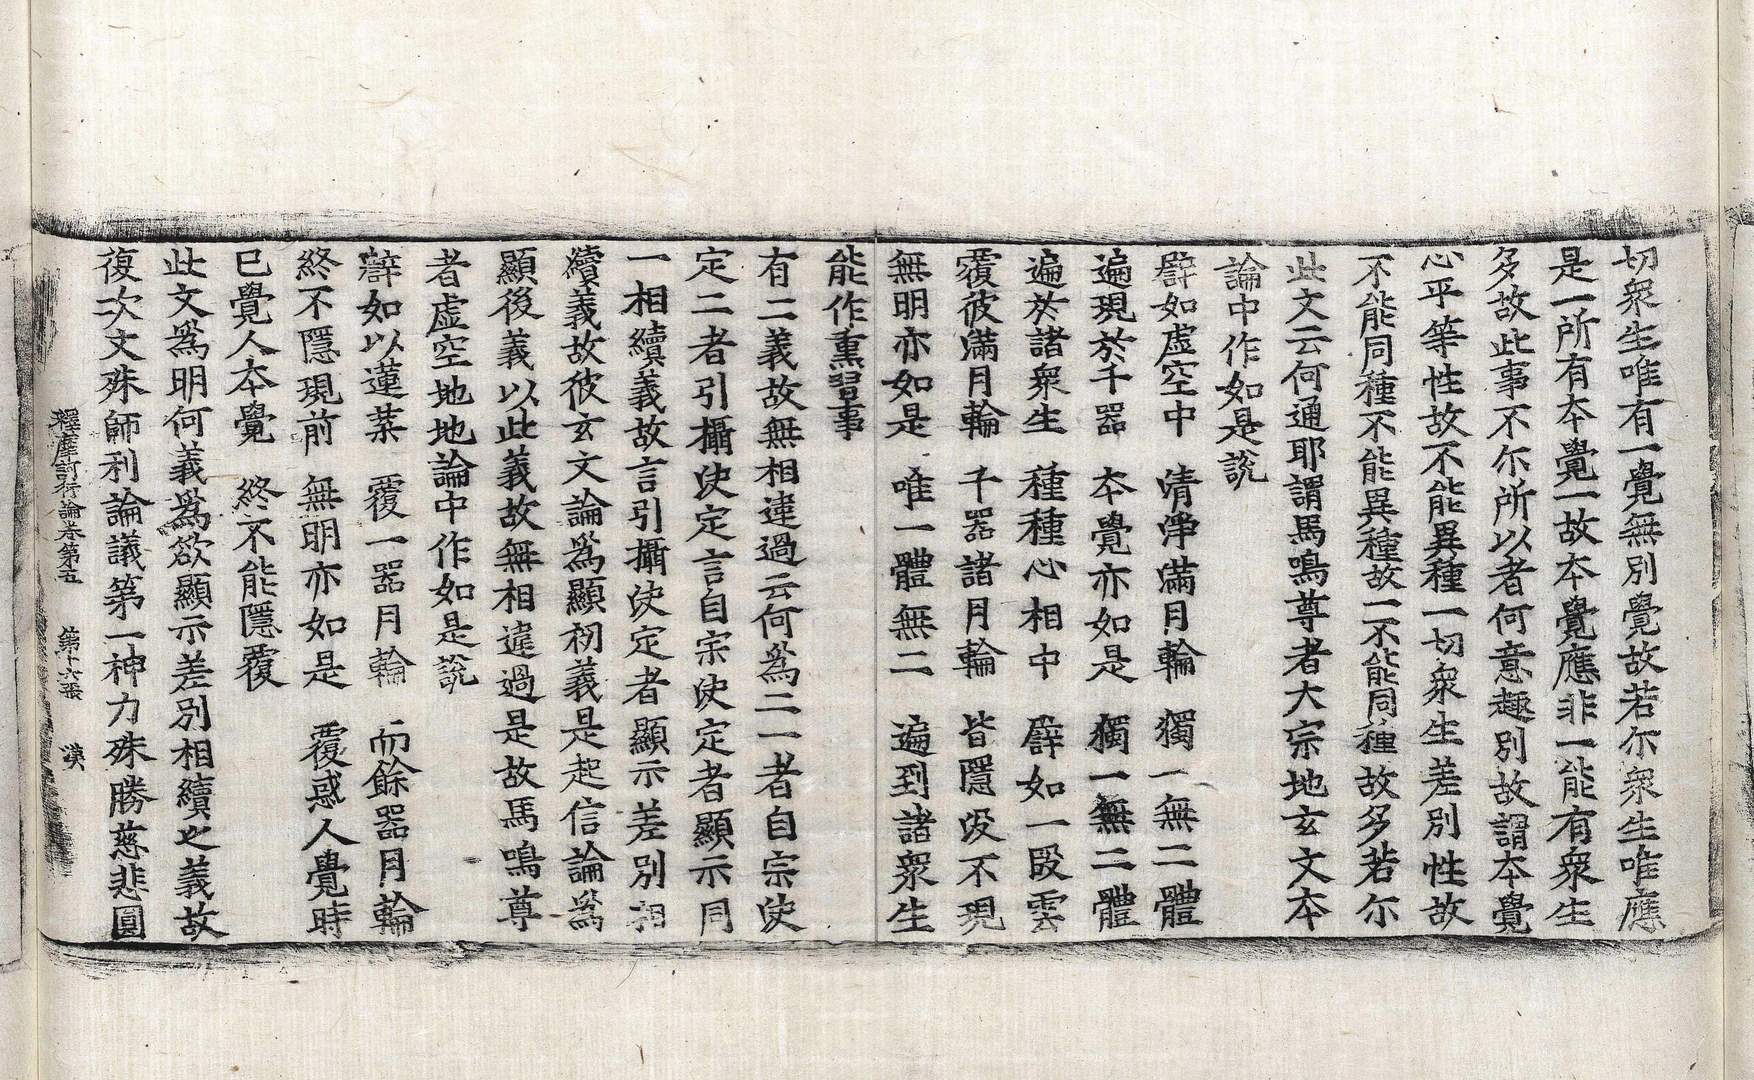 切衆生唯有一覺無別覺故若尒衆生唯應
是一所有本覺一故本覺應非一能有衆生
多故此事不尒所以者何意趣別故謂本覺
心平等性故不能異種一切衆生差別性故
不能同種不能異種故一不能同種故多若尒
此文云何通耶謂馬鳴尊者大宗地玄文本
論中作如是說
譬如虛空中　清淨滿月輪　獨一無二體
遍現於千器　本覺亦如是　獨一無二體
遍於諸衆生　種種心相中　譬如一段雲
覆彼滿月輪　千器諸月輪　皆隱没不現
無明亦如是　唯一體無二　遍到諸衆生
能作熏習事
有二義故無相違過云何為二一者自宗决
定二者引攝决定言自宗决定者顯示同
一相續義故言引攝决定者顯示差別相
續義故彼玄文論爲顯初義是起信論爲
顯後義以此義故無相違過是故馬鳴尊
者虛空地地論中作如是說
譬如以蓮葉　覆一器月輪　而餘器月輪
終不隱現前　無明亦如是　覆惑人覺時
已覺人本覺　終不能隱覆
此文爲明何義爲欲顯示差別相續之義故
復次文殊師利論議第一神力殊勝慈悲圓
釋摩訶衍論卷第五　第十六張　漢